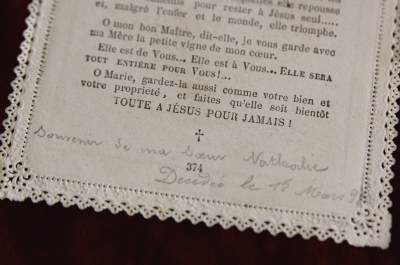 quelles elle repousse
pour rester à Jésus seul.....
et, malgré l'enfer et le monde, elle triomphe.
O mon bon Maître, dit-elle, je vous garde avec
ma Mère la petite vigne de mon cœur.
Elle est de Vous... Elle est à Vous... ELLE SERA
TOUT ENTIÈRE POUR VOUS!...
O Marie, gardez-la aussi comme votre bien et
votre propriété, et faites qu'elle soit bientôt
TOUTE A JÉSUS POUR JAMAIS !
†
Souvenir de ma sœur Nathalie
374
Décédée le 16 Mars